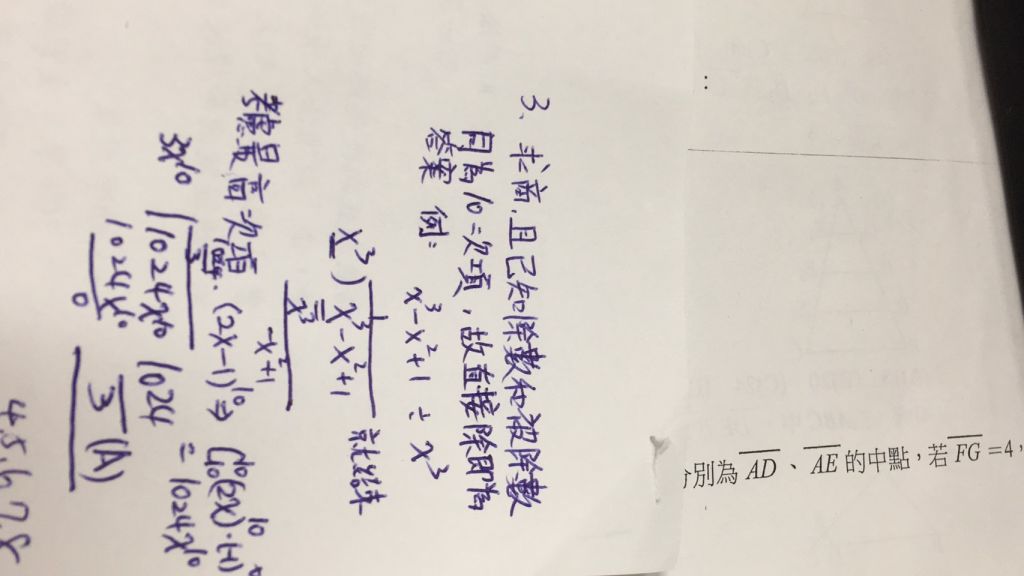 3、求商,且已知除數和被除數
因為10=次項,故直接除即為
答案 例: x³-x²+1 ÷ x³
1
x³)x³-x²+1 就結束
x³
-x²+1
考慮最高次項. (2x-1)¹⁰⇒ C¹⁰₀(2x)¹⁰·(-1)⁰
= 1024x¹⁰
3x¹⁰ 1024x¹⁰ 1024
1024x¹⁰ 3 (A)
0
4.5.6.7.8
分別為 AD 、 AE 的中點,若 FG =4,